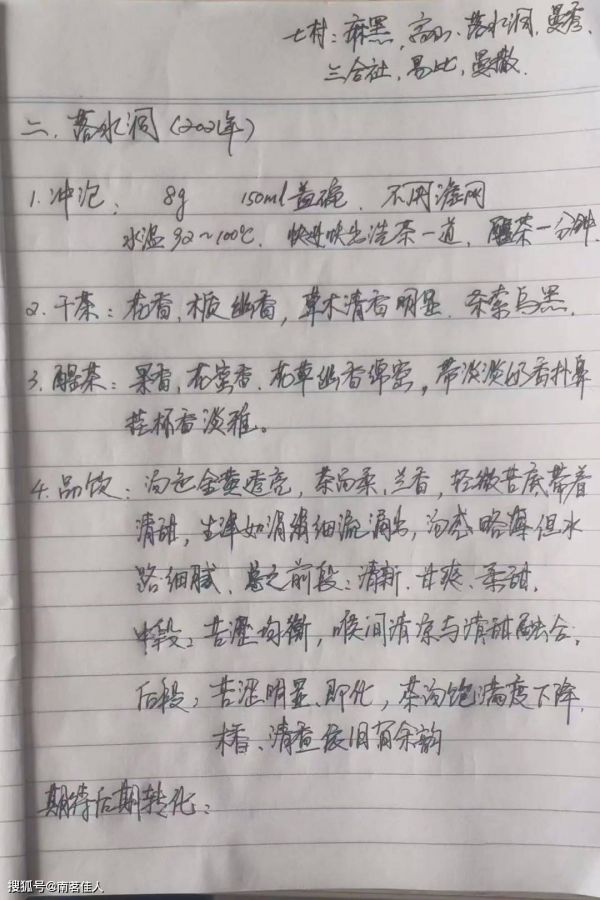 七村：麻黑、高山、落水洞、曼秀、
三合社、易比、曼撒.
二、落水洞（2021年）
1.冲泡： 8g 150ml盖碗、不用滤网
水温92~100℃、快进快出洗茶一道、醒茶一分钟.
2.干茶：花香、木质幽香，草木清香明显、条索乌黑、
3.醒茶：果香、花蜜香、花草幽香绵密，带淡淡奶香扑鼻
挂杯香淡雅。
4.品饮：汤色金黄透亮，茶汤柔，兰香，轻微苦底带着
清甜，生津如涓涓细流涌出，汤感略薄但水
路细腻、总之前段：清新、甘爽、柔甜，
中段：苦涩均衡，喉间清凉与清甜融合；
后段：苦涩明显、即化，茶汤饱满度下降，
木香、清香依旧有余韵
期待后期转化：
搜狐号@南茗佳人